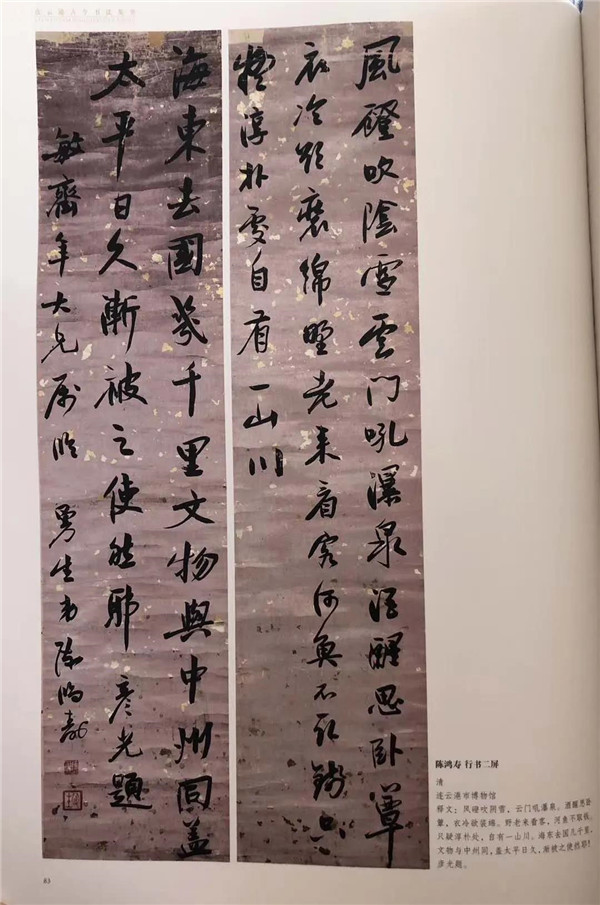 風磴吹陰雪雲門吼瀑泉酒醒思卧簟
衣冷欲裝綿野老来看客河魚不取錢只
疑淳朴處自有一山川
海東去國幾千里文物與中州同蓋
太平日久漸被之使然耶 彦光題
敏齋年大兄属临 曼生弟陳鴻壽
陈鸿寿 行书二屏
清
连云港市博物馆
释文：风磴吹阴雪，云门吼瀑泉。酒醒思卧
簟，衣冷欲装绵。野老来看客，河鱼不取钱。
只疑淳朴处，自有一山川。海东去国几千里，
文物与中州同，盖太平日久，渐被之使然耶！
彦光题。
83